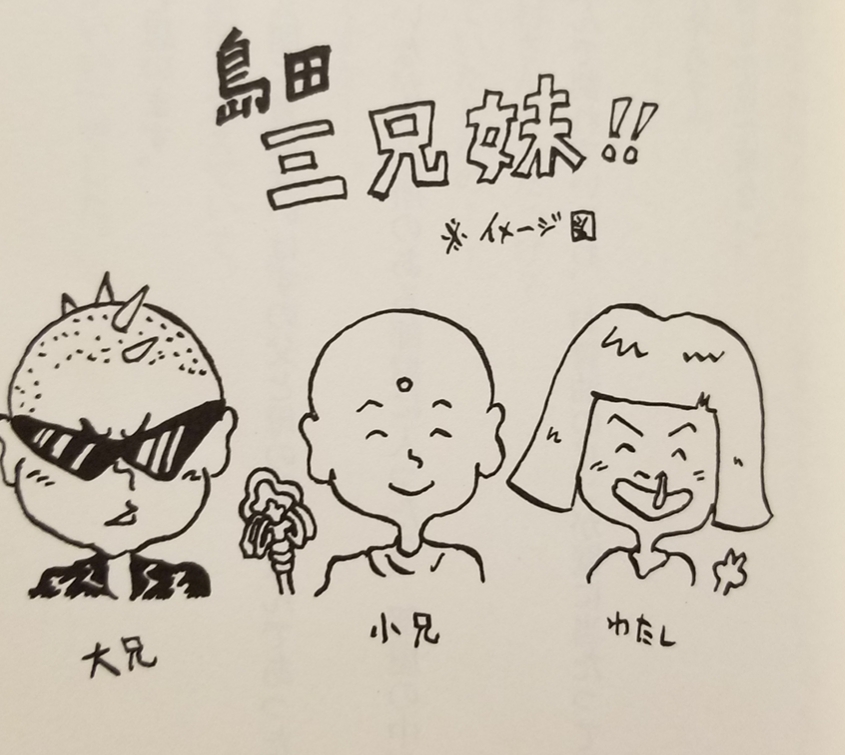 島田
三兄妹!!
※イメージ図
大兄
小兄
わたし